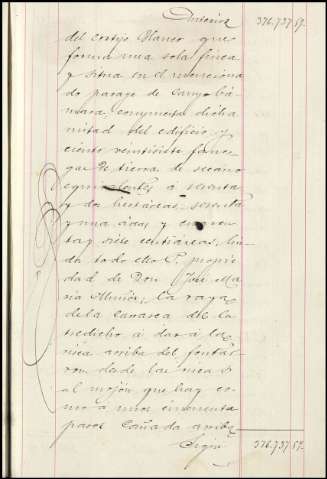 Anterior 376.737 57.
del cortijo Blanco que
forma una sola finca
y situa en el menciona
do parage de Campo Cá-
mara, compuesta dicha
mitad del edificio, y
ciento veintisiete fane-
gas de tierra de secano
equivalentes á setenta
y dos hectáreas, sesenta
y una áreas y cincuen-
ta y siete centiáreas, lin-
da todo ello propie
dad de Don José Ma
ria Muñoz, la raya
de la carrasca del
á dar á la
arriba del fontar-
ron desde
al mojon que hay co-
mo á unos cincuenta
pasos Cañada arriba
Sigue 376.737 57.